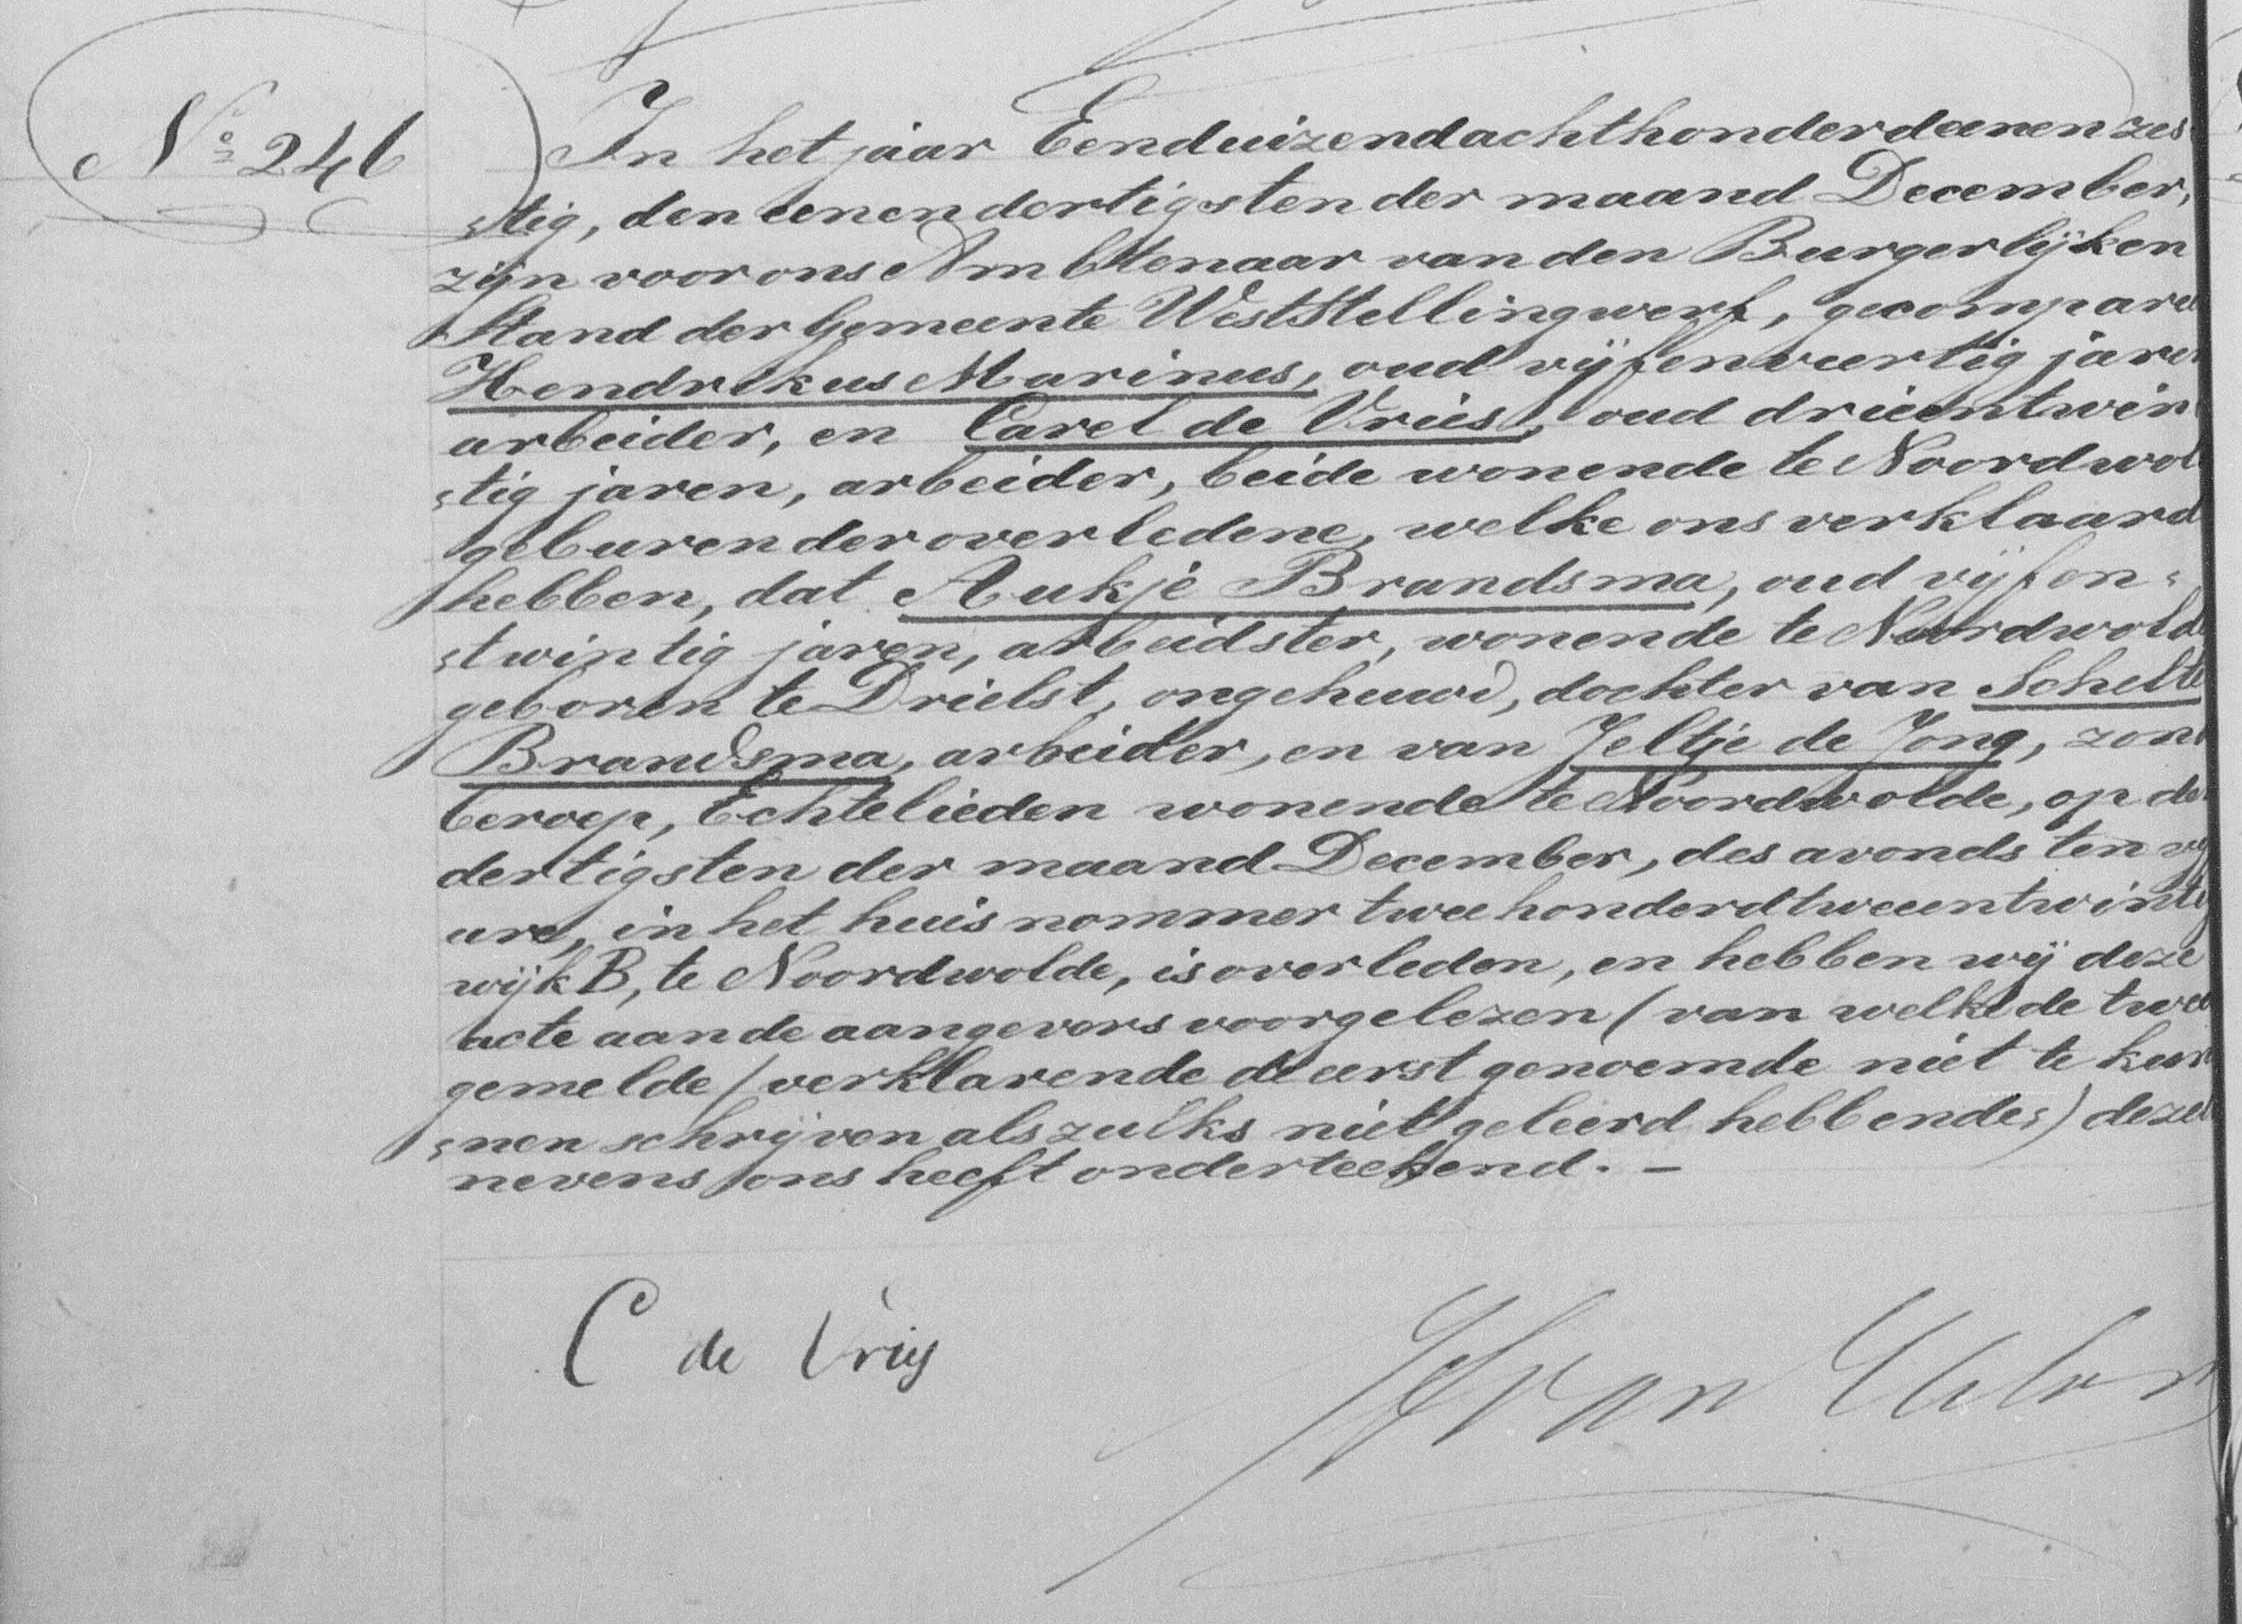 No 246
In het jaar Eenduizendachthonderdeenenzes
tig, den eenendertigsten der maand December,
zijn voor ons Ambtenaar van den Burgerlijken
Stand der Gemeente Weststellingwerf, gecompare
Hendrikus Marinus, oud vijfenveertig jare
arbeider, en Carel de Vries, oud drieentwin
tig jaren, arbeider, beide wonende te Noordwol
geburen der overledene, welke ons verklaard
hebben, dat Aukje Brandsma, oud vijfen=
twintig jaren, arbeidster, wonende te Noordwolde
geboren te Drielst, ongehuwd, dochter van Schelte
Brandsma, arbeider, en van Jeltje de Jong, zon
beroep, Echtelieden wonende te Noordwolde, op de
dertigsten der maand December, des avonds ten
ure, in het huis nommer tweehonderdtweeentwintig
wijk B, te Noordwolde, is overleden, en hebben wij deze
acte aan de aangevers voorgelezen (van welke de twee
gemelde / verklarende de eerstgenoemde niet te kun
nen schrijven als zulks niet geleerd hebbende,) deze
nevens ons heeft onderteekend. -
C de Vries
van